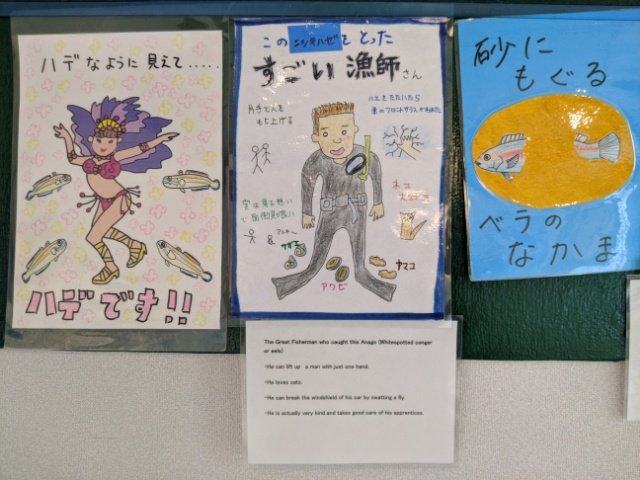 ハデなように見えて.....
ハデです!!
この ニシキハゼをとった
すごい漁師さん
片手で人を
もち上げる
ハエをたたいたら
車のフロントガラスがわれた
ネコ
大好き
実は見る想い
で面倒見が良い
サザエ
アワビ
ナマコ
砂に
もぐる
ベラの
なかま
The Great Fisherman who caught this Anago (Whitespotted conger
or eels)
-He can lift up a man with just one hand.
-He loves cats.
-He can break the windshield of his car by swatting a fly.
-He is actually very kind and takes good care of his apprentices.